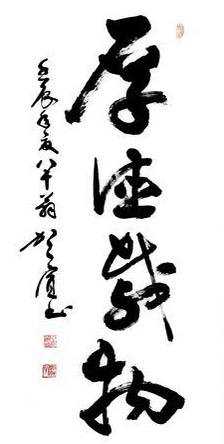 厚德载物
壬辰年夏八十翁